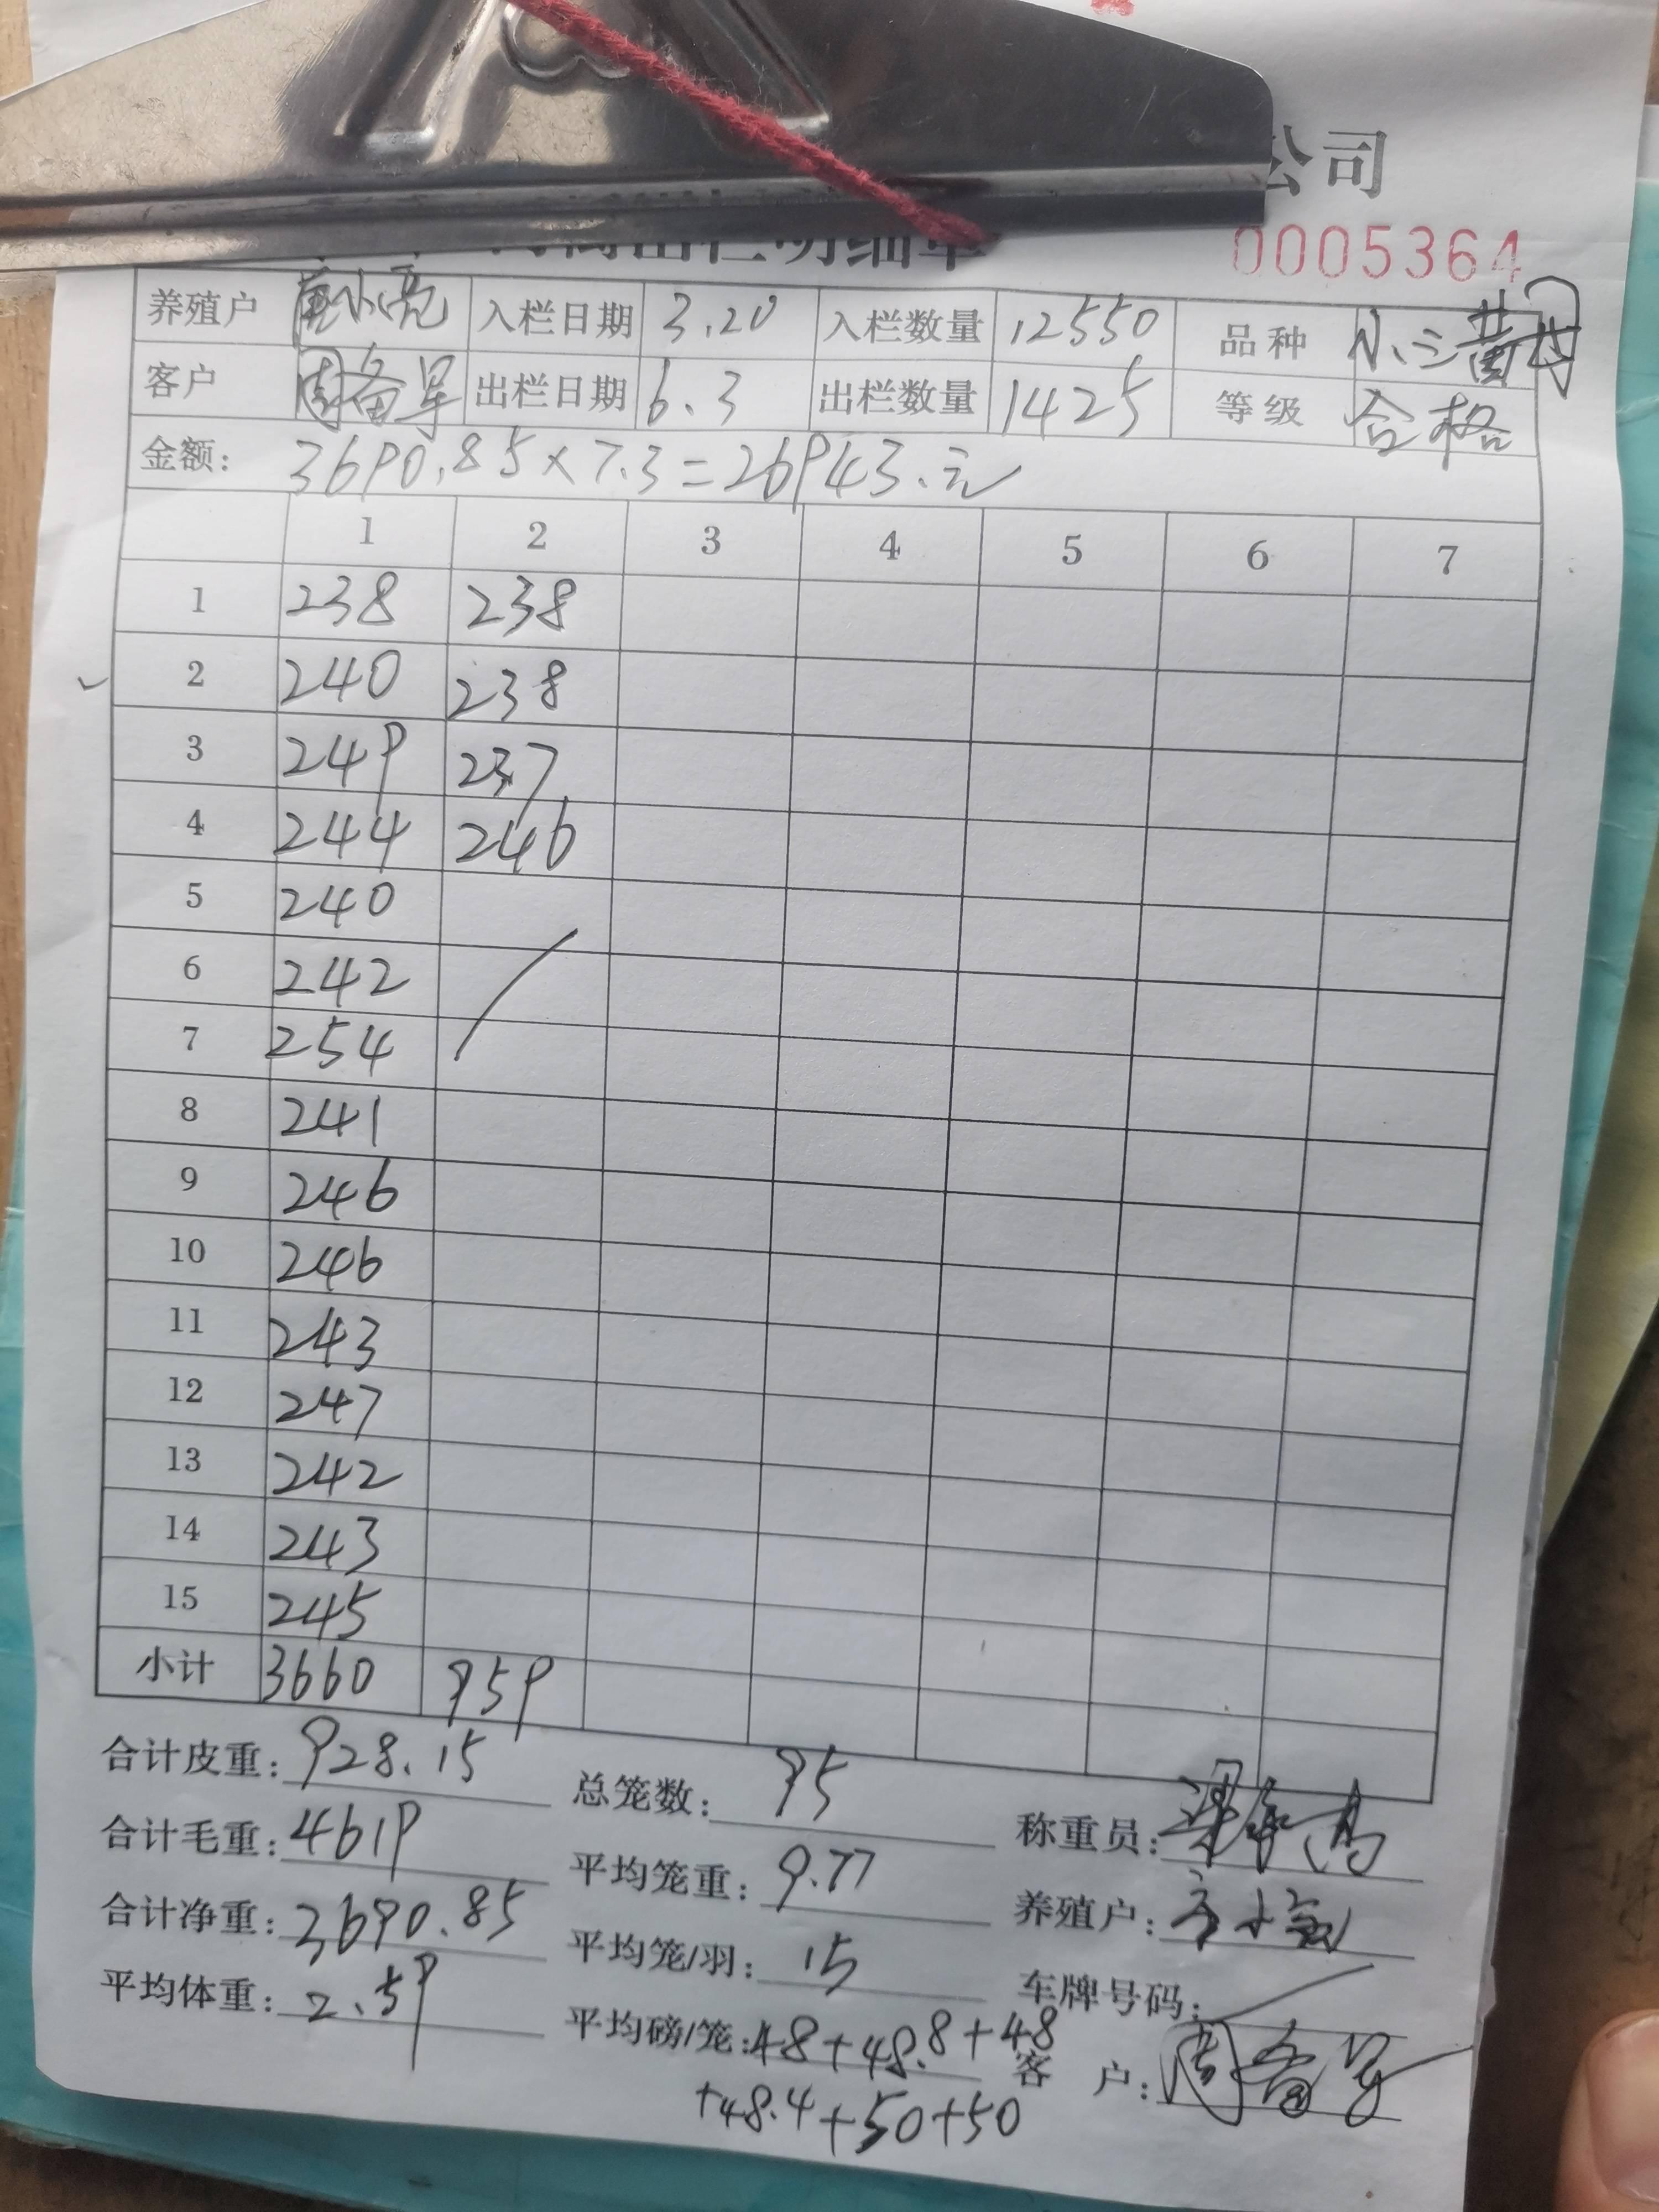 公司
出栏明细单
0005364
养殖户 小亮 入栏日期 3.20 入栏数量 12550 品种 小三黄母
客户 周备军 出栏日期 6.3 出栏数量 1425 等级 合格
金额: 3690.85×7.3=26943.元
1 2 3 4 5 6 7
1 238 238
2 240 238
3 249 237
4 244 246
5 240
6 242
7 254
8 241
9 246
10 246
11 243
12 247
13 242
14 243
15 245
小计 3660 959
合计皮重: 928.15 总笼数: 95 称重员:
合计毛重: 4619 平均笼重: 9.77 养殖户:
合计净重: 3690.85 平均笼/羽: 15 车牌号码:
平均体重: 2.59 平均磅/笼: 48+48.8+48 客户: 周备军
+48.4+50+50